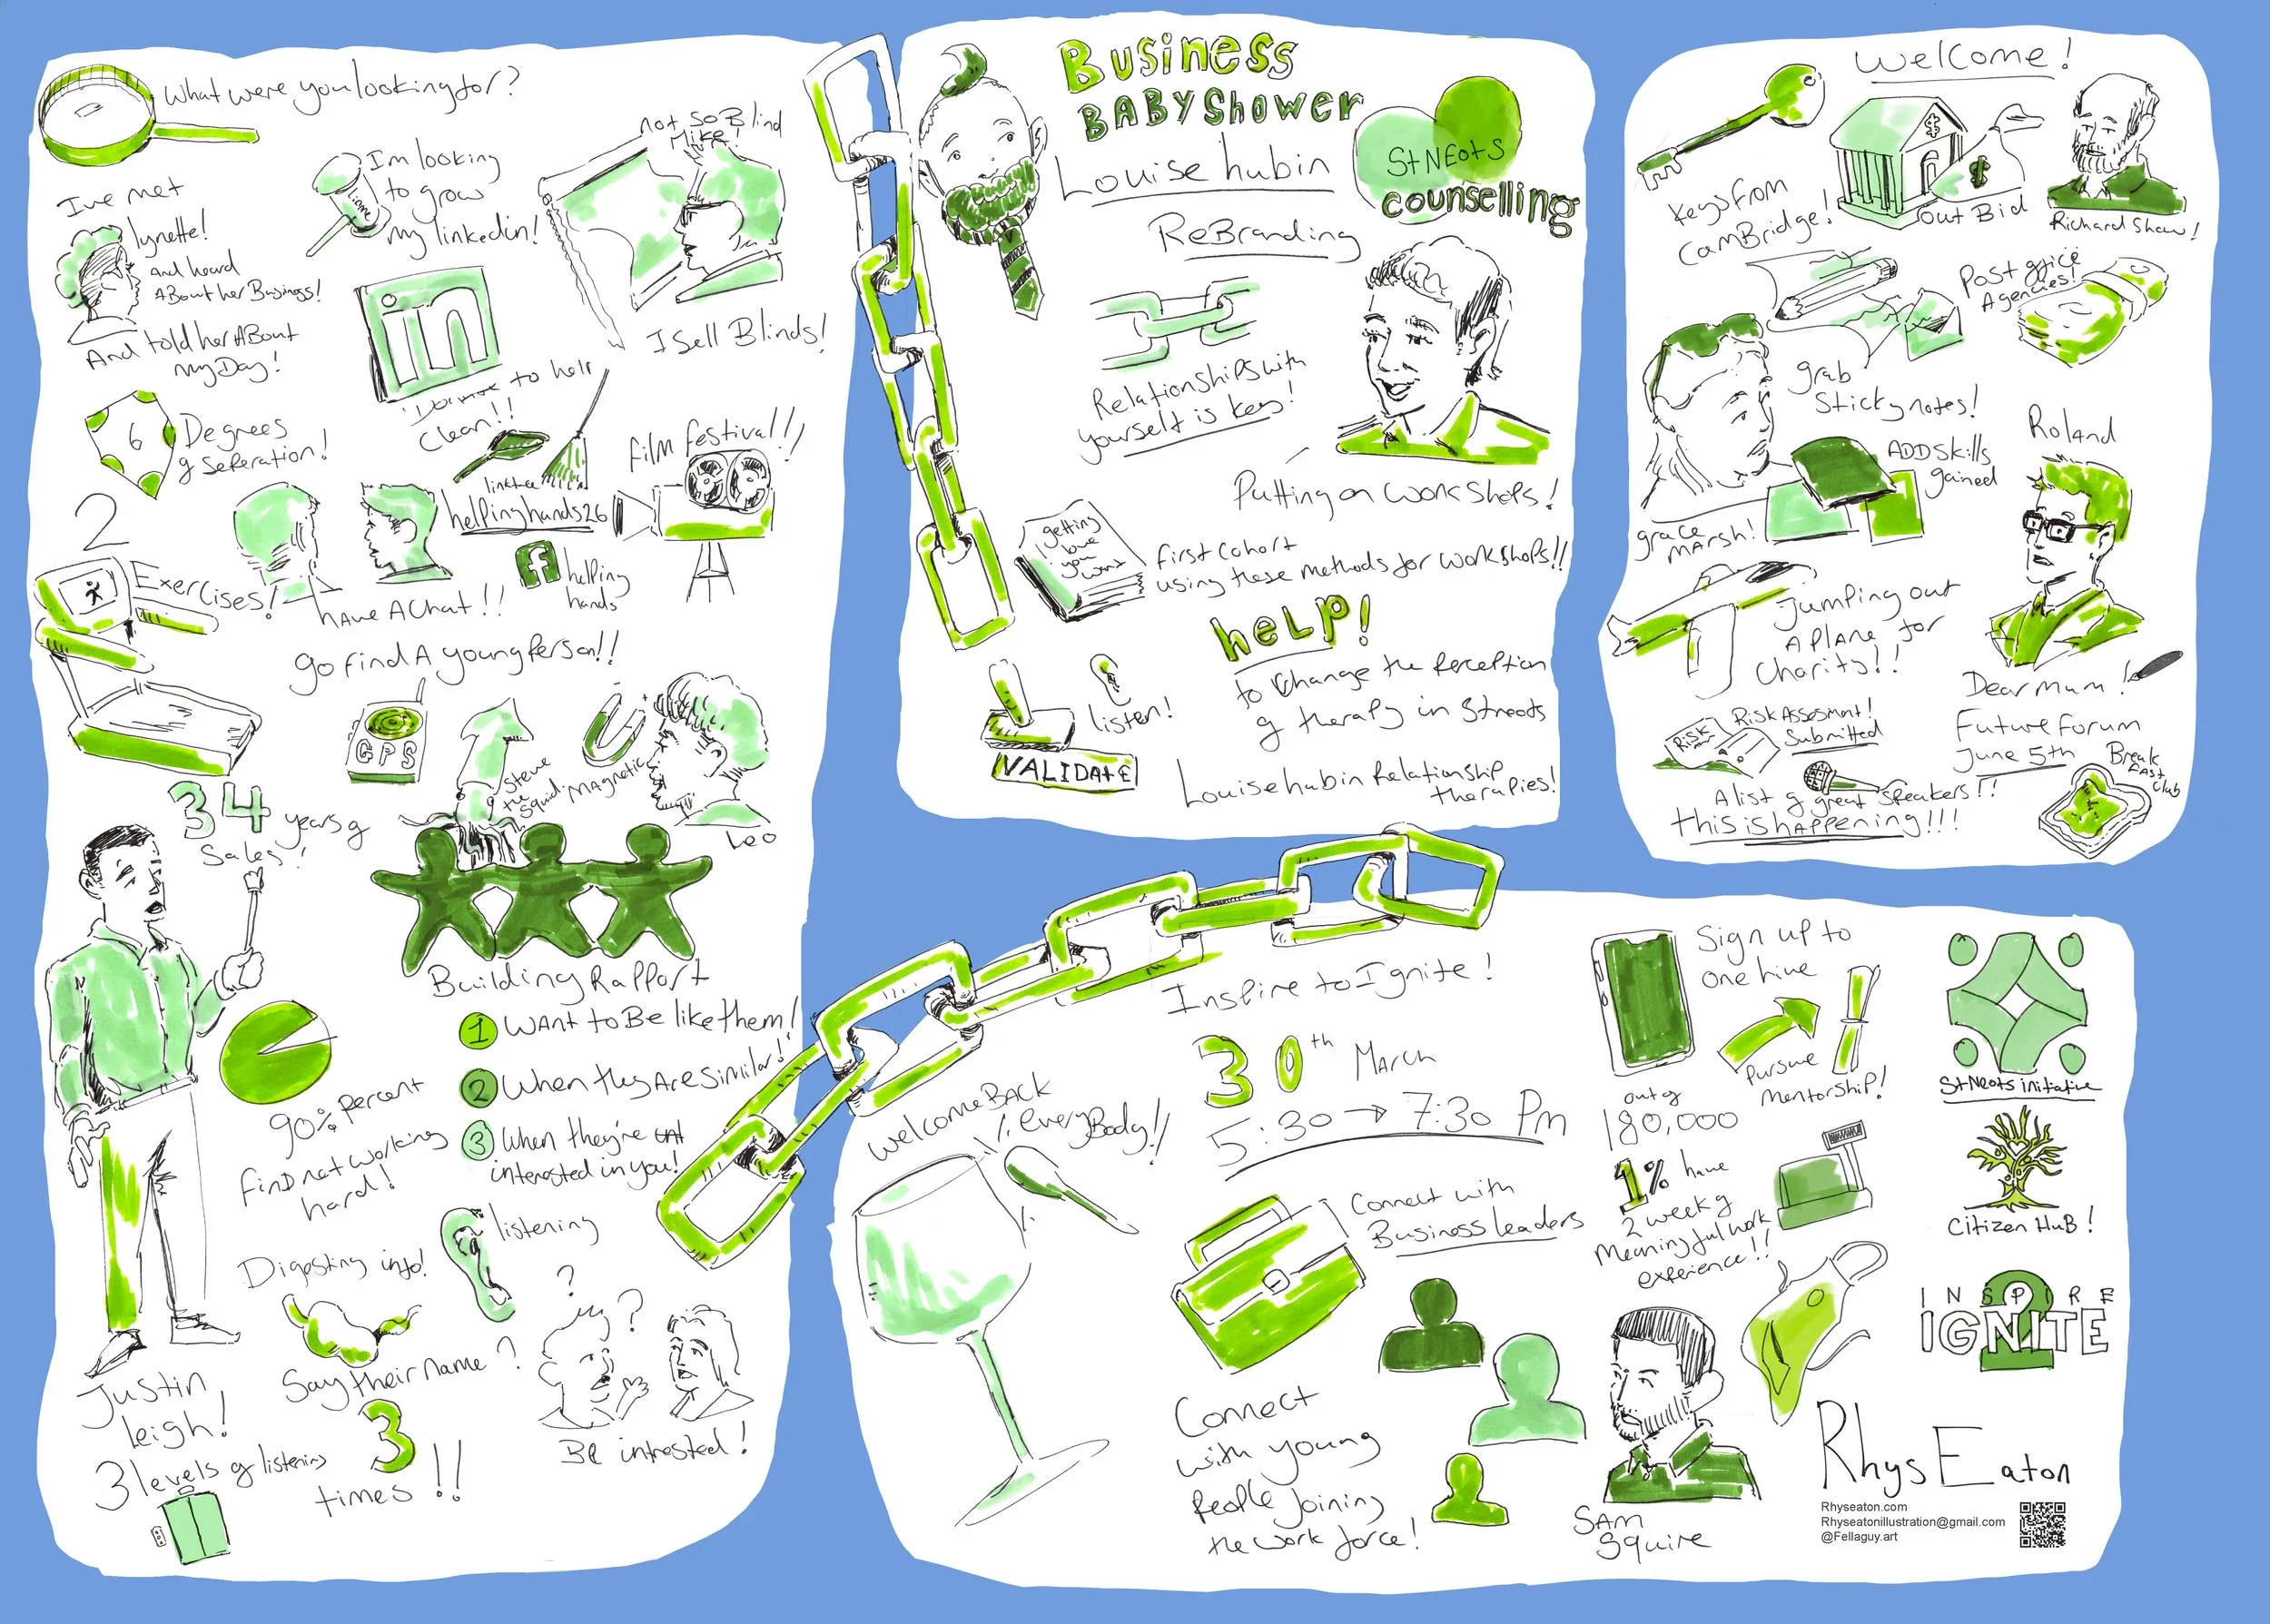 What were you looking for?
I've met
lynette!
and heard
About her Business!
And told her About
my Day!
I'm looking
to grow
my linkedin!
in
not so Blind
Mike!
I sell Blinds!
6
Degrees
of seperation!
to help
clean!!
linktree
helpinghands26
f helping
hands
film festival!!
2
Exercises!
have A Chat!!
go find A young Person!!
GPS
Steve
the
squid
Magnetic
Leo
34 years of
Sales!
Building Rapport
1 Want to Be like them!
2 When they Are similar!
3 When they're
interested in you!
90% percent
find not working
hard!
listening
Digesting info!
Say their name?
3
times!!
? ?
Be intrested!
Justin
Leigh!
3 levels of listening
Business
Baby Shower
Louise hubin
St Neots
counselling
ReBranding
Relationships with
yourself is key!
Putting on workshops!
getting
love
you
want
first cohort
using these methods for workshops!!
help!
to change the perception
of therapy in St neots
listen!
VALIDATE
Louise hubin Relationship
therapies!
Welcome!
Keys from
CamBridge!
$
$
out Bid
Richard Shaw!
Post office
Agencies!
grab
Sticky notes!
ADD skills
gained
grace
Marsh!
Roland
Jumping out
A plane for
Charity!!
Dear mum!
Risk Assesment!
Submitted
Risk
Future forum
June 5th
Break
fast
Club
A list of great speakers!!
this is happening!!!
Inspire to Ignite!
30th March
5:30 → 7:30 Pm
welcome BACK
everyBody!!
Connect with
Business leaders
Connect
with young
People Joining
the work force!
Sign up to
one hive
pursue
mentorship!
out of
180,000
1% have
2 week of
Meaningful work
experience!!
Sam
Squire
St Neots initiative
Citizen HuB!
INSPIRE
2
IGNITE
Rhys Eaton
Rhyseaton.com
Rhyseatonillustration@gmail.com
@Fellaguy.art